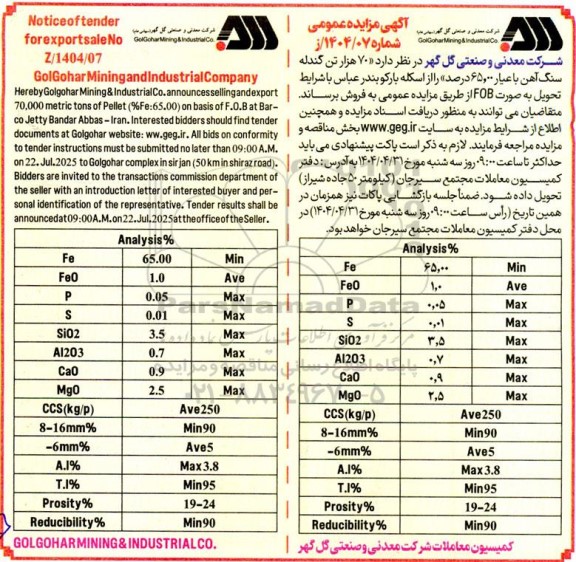 Notice of tender
for export sale No
Z/1404/07
شرکت معدنی و صنعتی گل گهر
GolGohar Mining & Industrial Co.
GolGohar Mining and Industrial Company
Hereby Golgohar Mining & Industrial Co. announces selling and export
70,000 metric tons of Pellet (%Fe:65.00) on basis of F.O.B at Bar-
co Jetty Bandar Abbas – Iran. Interested bidders should find tender
documents at Golgohar website: ww.geg.ir. All bids on conformity
to tender instructions must be submitted no later than 09:00 A.M.
on 22. Jul.2025 to Golgohar complex in sirjan (50 km in shiraz road).
Bidders are invited to the transactions commission department of
the seller with an introduction letter of interested buyer and per-
sonal identification of the representative. Tender results shall be
announced at 09:00 A.M. on 22. Jul.2025 at the office of the Seller.
Analysis%
Fe 65.00 Min
FeO 1.0 Ave
P 0.05 Max
S 0.01 Max
SiO2 3.5 Max
Al2O3 0.7 Max
CaO 0.9 Max
MgO 2.5 Max
CCS(kg/p) Ave250
8-16mm% Min90
-6mm% Ave5
A.I% Max3.8
T.I% Min95
Prosity% 19-24
Reducibility% Min90
GOLGOHAR MINING & INDUSTRIAL CO.
آگهی مزایده عمومی
شماره ۱۴۰۴/۰۷/ز
شرکت معدنی و صنعتی گل گهر
GolGohar Mining & Industrial Co.
شرکت معدنی و صنعتی گل گهر در نظر دارد «۷۰ هزار تن گندله
سنگ آهن با عیار ۶۵,۰۰ درصد» را از اسکله بارکو بندر عباس با شرایط
تحویل به صورت FOB از طریق مزایده عمومی به فروش برساند.
متقاضیان می توانند به منظور دریافت اسناد مزایده و همچنین
اطلاع از شرایط مزایده به سایت www.geg.ir بخش مناقصه و
مزایده مراجعه فرمایند. لازم به ذکر است پاکت پیشنهادی می باید
حداکثر تا ساعت ۰۹:۰۰ روز سه شنبه مورخ ۱۴۰۴/۰۴/۳۱ به آدرس: دفتر
کمیسیون معاملات مجتمع سیرجان (کیلومتر ۵۰ جاده شیراز)
تحویل داده شود. ضمناً جلسه بازگشایی پاکات نیز همزمان در
همین تاریخ (رأس ساعت ۰۹:۰۰ روز سه شنبه مورخ ۱۴۰۴/۰۴/۳۱) در
محل دفتر کمیسیون معاملات مجتمع سیرجان خواهد بود.
Analysis%
Fe ۶۵,۰۰ Min
FeO ۱,۰ Ave
P ۰,۰۵ Max
S ۰,۰۱ Max
SiO2 ۳,۵ Max
Al2O3 ۰,۷ Max
CaO ۰,۹ Max
MgO ۲,۵ Max
CCS(kg/p) Ave250
8-16mm% Min90
-6mm% Ave5
A.I% Max3.8
T.I% Min95
Prosity% 19-24
Reducibility% Min90
کمیسیون معاملات شرکت معدنی و صنعتی گل گهر
ParsNamadData
پایگاه اطلاع رسانی مناقصه و مزایده
۰۲۱-۸۸۳۴۹۶۷۰-۵